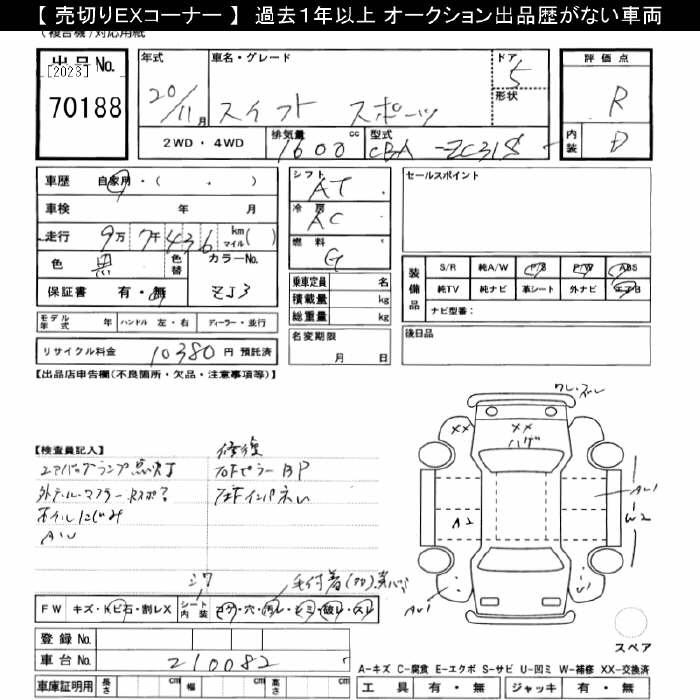 【 売切りEXコーナー 】 過去1年以上 オークション出品歴がない車両
(複合機)対応用紙
出品No.
[2023]
70188
年式
20/11月
車名・グレード
スイフト スポーツ
ドア
5
形状
評価点
R
内装
D
2WD・4WD
排気量
1600 cc
型式
CBA-ZC31S
車歴 自家用・( . )
車検 年 月
走行 9万7千436 km マイル( )
色 黒 色替
カラーNo.
ZJ3
保証書 有・無
モデル年式 年 ハンドル 左・右 ディーラー・並行
リサイクル料金 10380 円 預託済
シフト
AT
冷房
AC
燃料
G
乗車定員 名
積載量 kg
総重量 kg
名変期限
月 日
セールスポイント
装備品
S/R 純A/W P/S P/W ABS
純TV 純ナビ 革シート 外ナビ エアB
ナビ型番:
後日品
【出品店申告欄(不良箇所・欠品・注意事項等)】
【検査員記入】
修復
エアバッグランプ点灯
外テール・マフラー
ホイルにじみ
AW
シワ
FW キズ・トビ石・割レX
シート内装 コゲ・穴・汚レ・シミ・破レ・スレ
登録No.
車台No. 210082
車庫証明用 長さ cm 幅 cm 高さ cm
XX
XX
ハゲ
A2
AU1
W2
AU1
スペア
A-キズ C-腐食 E-エクボ S-サビ U-凹ミ W-補修 XX-交換済
工具 有・無 ジャッキ 有・無